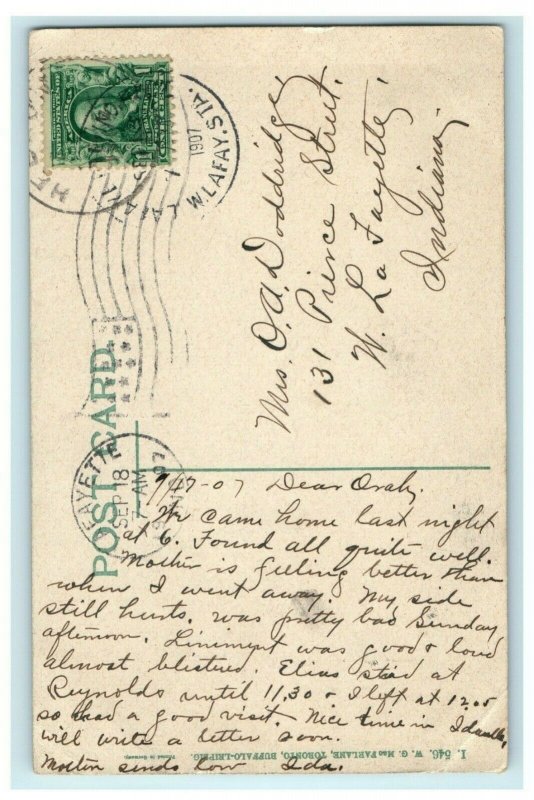 W.LAFAY. STA.
1907
UNITED STATES OF AMERICA
Mrs. O. A. Doddridge,
131 Pierce Street.
W. La Fayette,
Indiana,
POST CARD.
FAYETTE
SEP 18
7 AM
9/17-07 Dear Oraly.
We came home last night
at 6. Found all quite well.
Mother is feeling better than
when I went away. My side
still hurts. was pretty bad Sunday
afternoon. Liniment was good &
almost blistered. Elias at
Reynolds until 11,30 & I left at 12.05
so had a good visit. Nice time in
will write a letter soon.
Mother sends love Ida.
I. 546. W. G. MacFARLANE, TORONTO, BUFFALO-LEIPZIG. Printed in Germany.